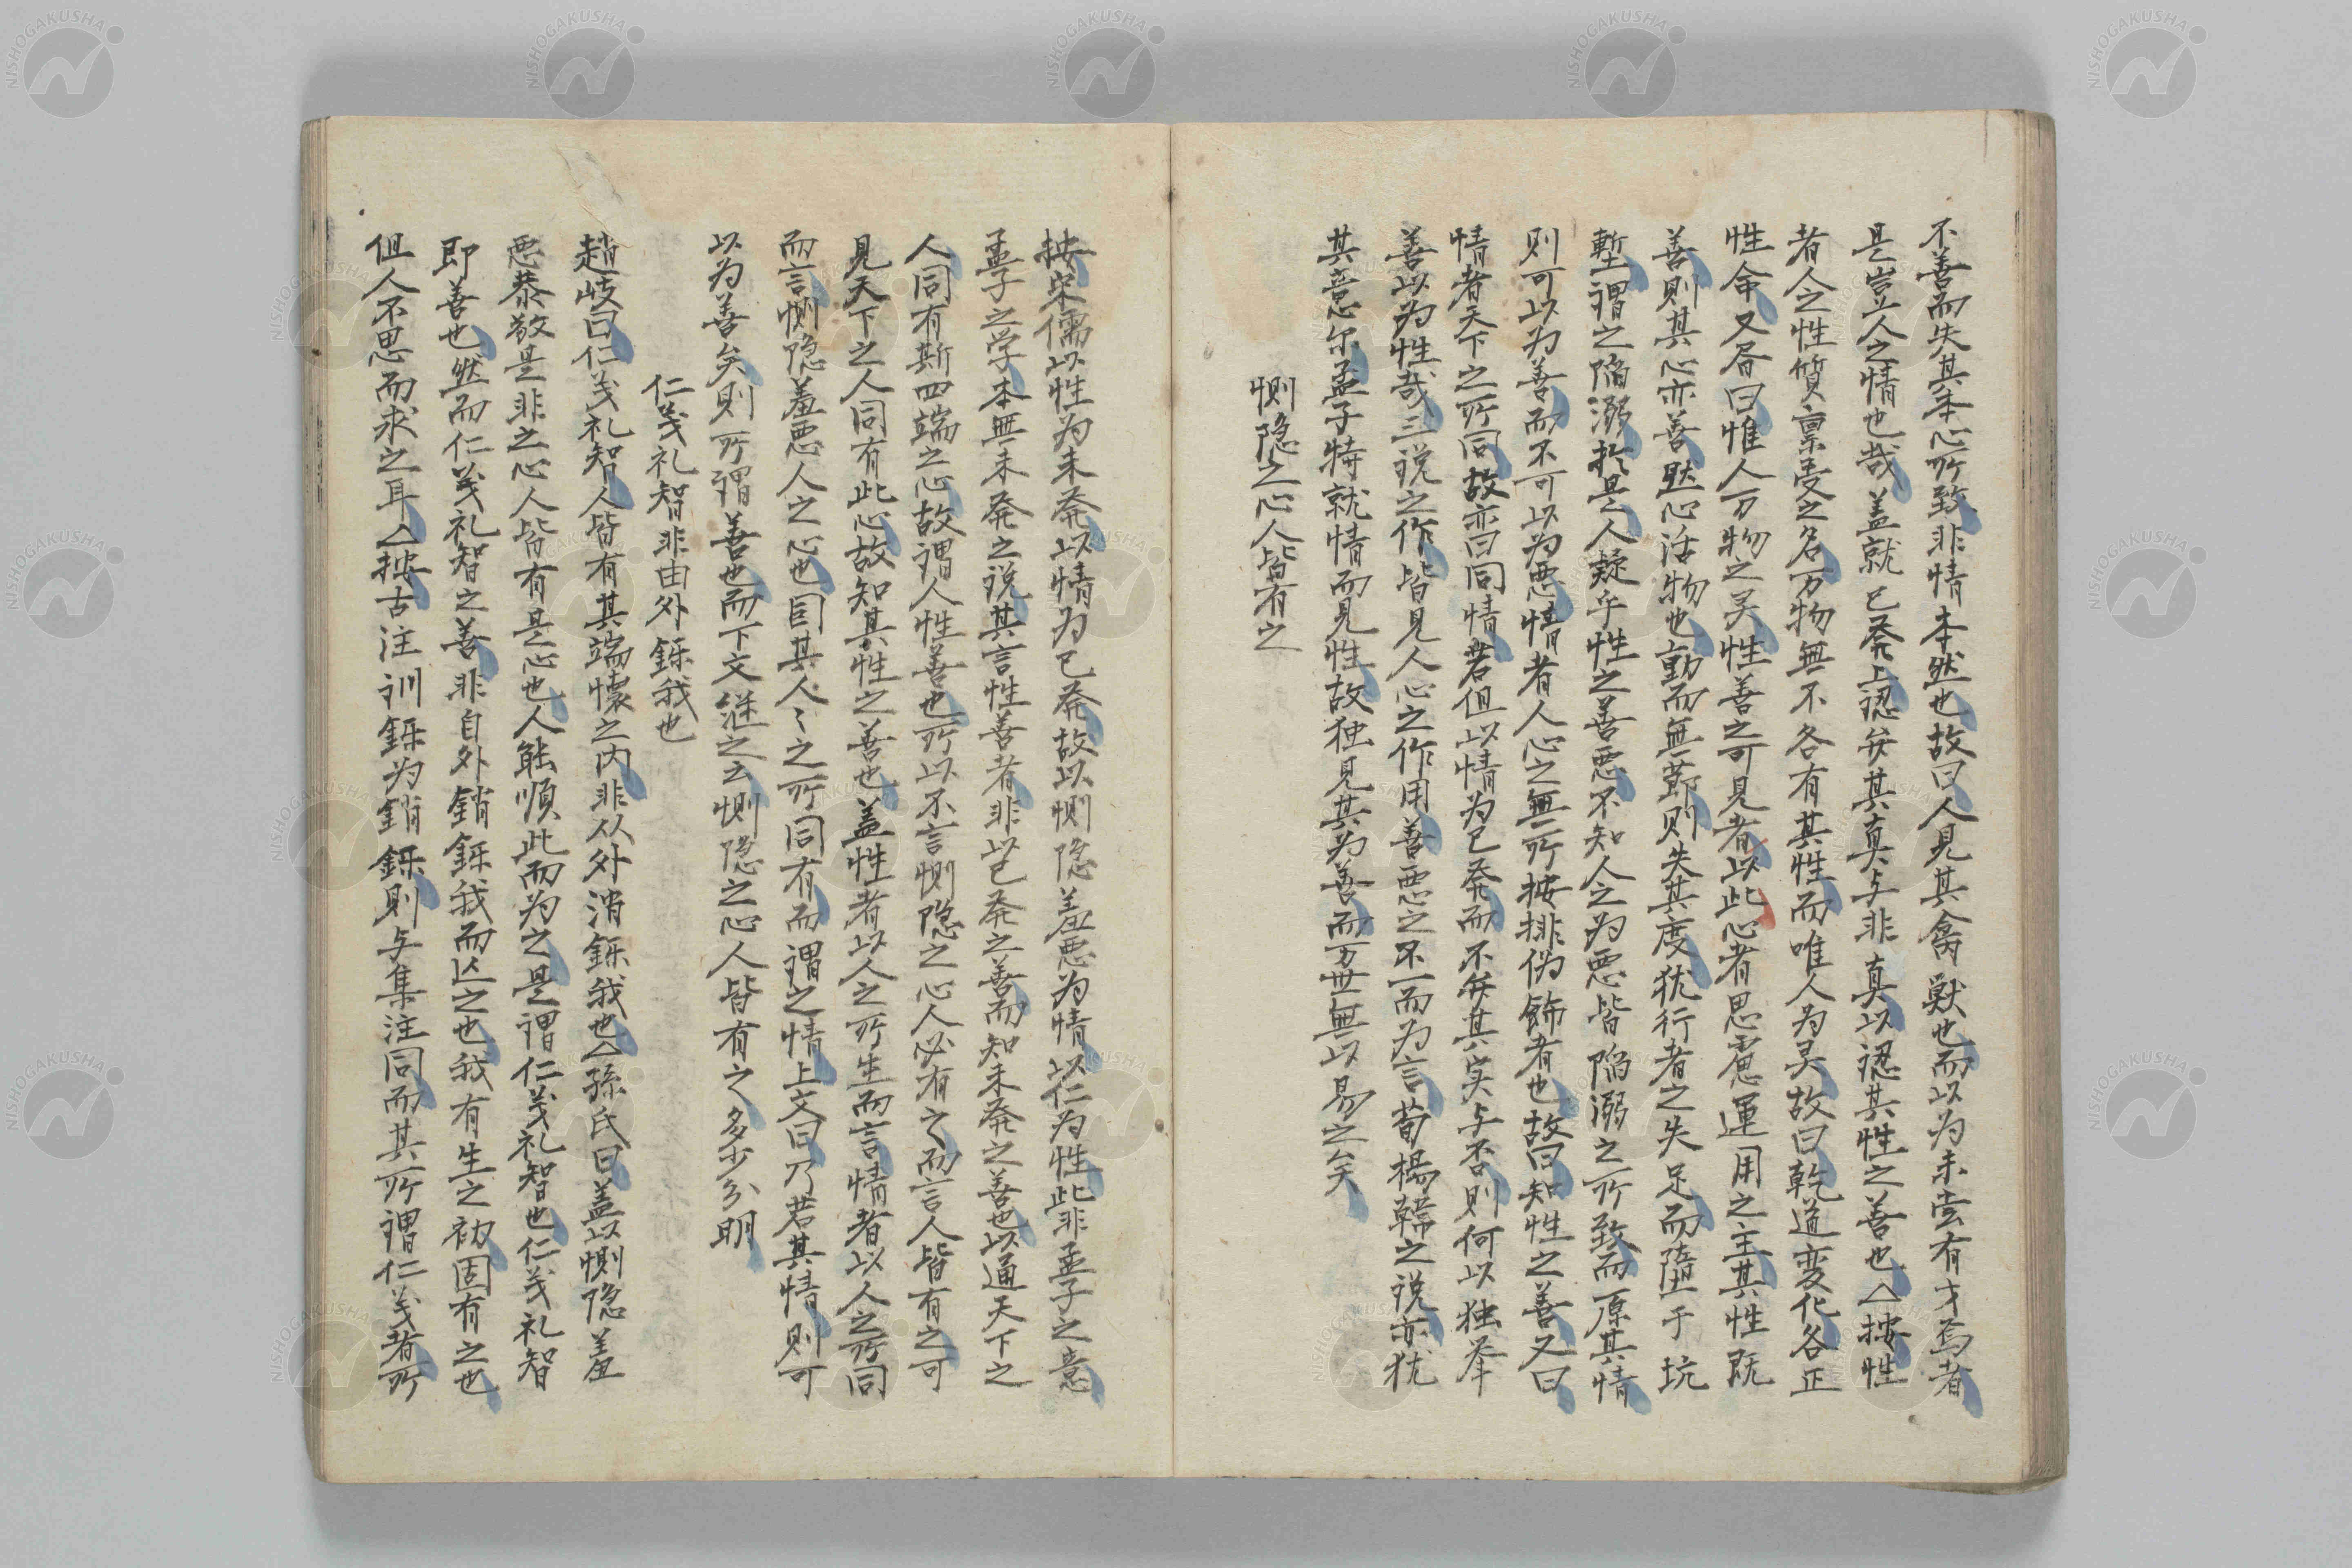 不善而失其本心所致非情本然也故曰人見其禽獣也而以为未尝有才焉者
是豈人之情也哉盖就已発上認矣其真与非真以認其性之善也△按性
者人之性質禀受之名万物無不各有其性而唯人为灵故曰乾道変化各正
性命又昏曰惟人万物之灵性善之可見者以此心者思慮運用之主其性既
善則其心亦善然心活物也動而無節则失其度犹行者之失足而墮于坑
塹謂之陥溺於是人疑乎性之善悪不知人之为悪皆陥溺之所致而原其情
则可以为善而不可以为悪情者人心之無所按排偽飾者也故曰知性之善又曰
情者天下之所同故亦曰同情若但以情为已発而不矣其实与否則何以独举
善以为性哉三説之作皆見人心之作用善悪之不一而为言荀楊韓之説亦犹
其意尔孟子特就情而見性故独見其为善而万世無以易之矣
惻隠之心人皆有之
按宋儒以性为未発以情为已発故以惻隠羞悪为情以仁为性此非孟子之意
孟子之学本無未発之説其言性善者非以已発之善而知未発之善也以通天下之
人同有斯四端之心故謂人性善也所以不言惻隠之心人必有之而言人皆有之可
見天下之人同有此心故知其性之善也盖性者以人之所生而言情者以人之所同
而言惻隠羞悪人之心也自其人〻之所同有而謂之情上文曰乃若其情則可
以为善矣則所謂善也而下文継之云惻隠之心人皆有之多少分明
仁义礼智非由外鑠我也
趙岐曰仁义礼智人皆有其端懐之内非从外消鑠我也△孫氏曰盖以惻隠羞
悪恭敬是非之心人皆有是心也人能順此而为之是謂仁义礼智也仁义礼智
即善也然而仁义礼智之善非自外銷鑠我而亡之也我有生之初固有之也
但人不思而求之耳△按古注訓鑠为銷鑠則与集注同而其所謂仁义者所